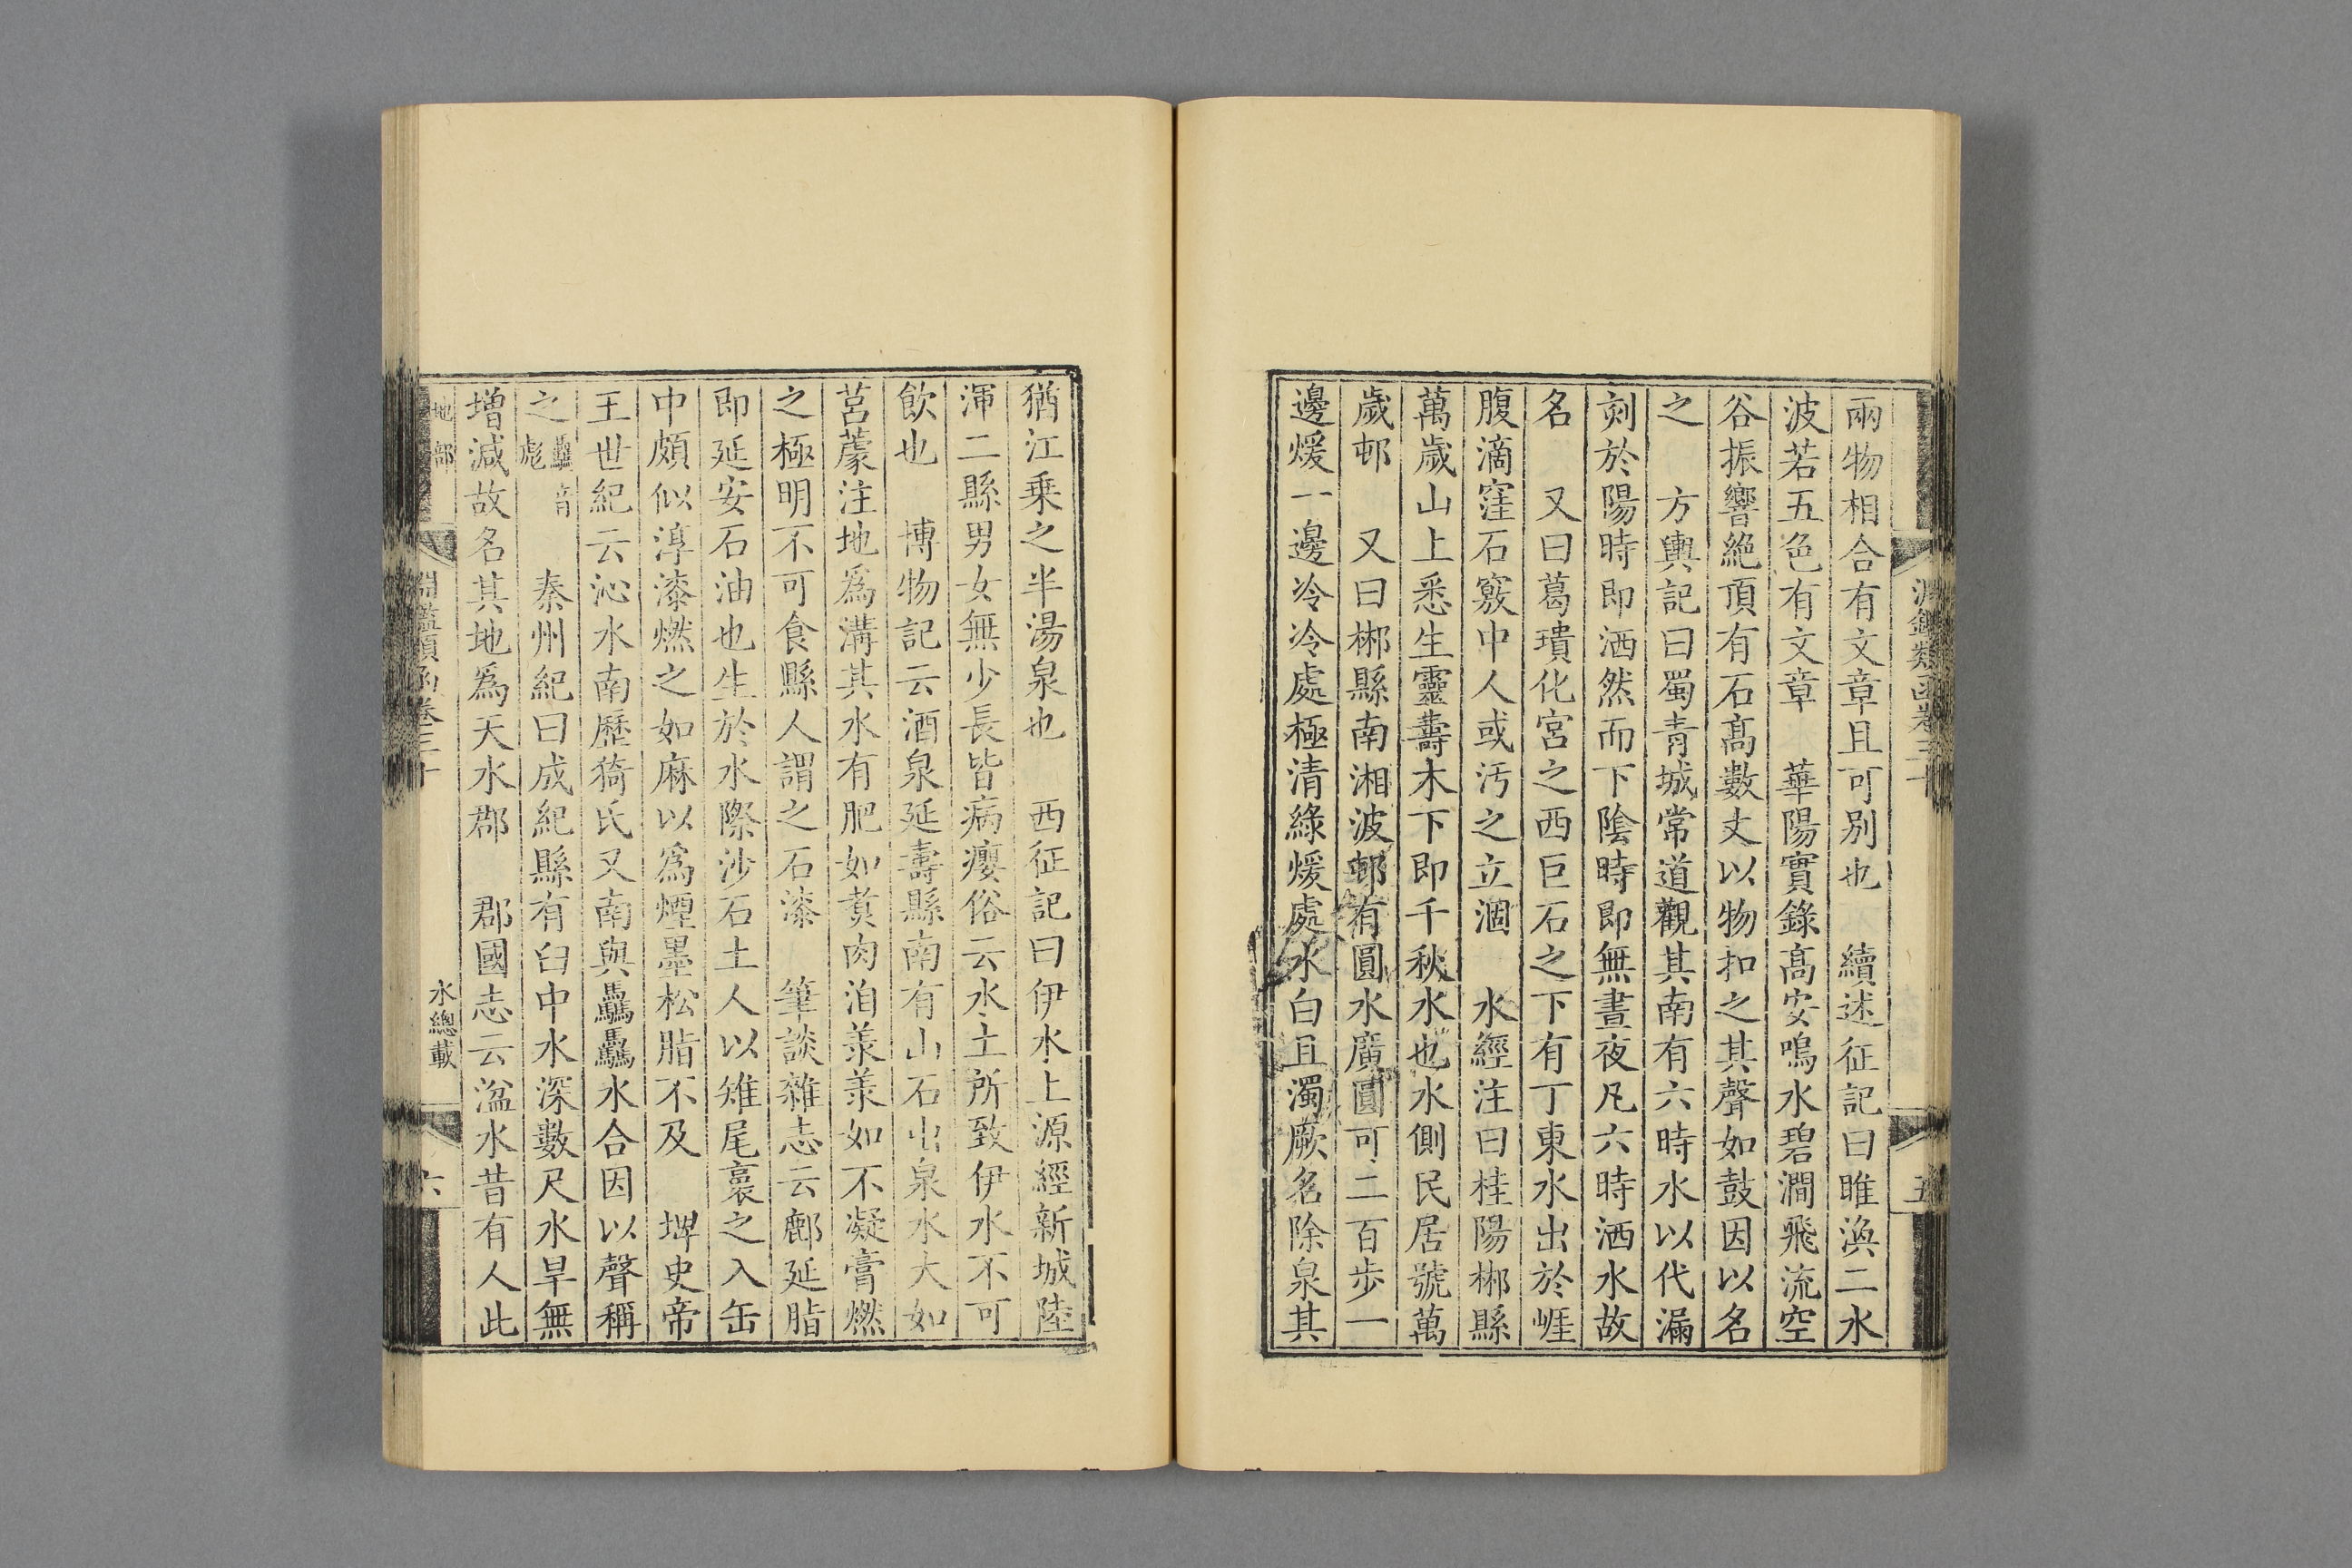 淵鑑類函卷三十
五
兩物相合有文章且可別也　續述征記曰睢渙二水
波若五色有文章　華陽實錄高安鳴水碧澗飛流空
谷振響絕頂有石高數丈以物扣之其聲如鼓因以名
之　方輿記曰蜀青城常道觀其南有六時水以代漏
刻於陽時即洒然而下陰時即無晝夜凡六時洒水故
名　又曰葛璝化宮之西巨石之下有丁東水出於崕
腹滴窪石竅中人或汚之立涸　水經注曰桂陽郴縣
萬歲山上悉生靈壽木下即千秋水也水側民居號萬
歲邨　又曰郴縣南湘波邨有圓水廣圓可二百步一
邊煖一邊冷冷處極清綠煖處水白且濁厥名除泉其
猶江乗之半湯泉也　西征記曰伊水上源經新城陸
渾二縣男女無少長皆病癭俗云水土所致伊水不可
飲也　博物記云酒泉延壽縣南有山石出泉水大如
莒䕷注地爲溝其水有肥如煑肉洎羕羕如不凝膏燃
之極明不可食縣人謂之石漆　筆談雜志云鄜延脂
即延安石油也生於水際沙石土人以雉尾裛之入缶
中頗似淳漆燃之如麻以爲煙墨松脂不及　埤史帝
王世紀云沁水南歷猗氏又南與驫驫水合因以聲稱
之驫音彪　秦州紀曰成紀縣有臼中水深數尺水旱無
增減故名其地爲天水郡　郡國志云湓水昔有人此
地部
淵鑑類函卷三十
水總載
六